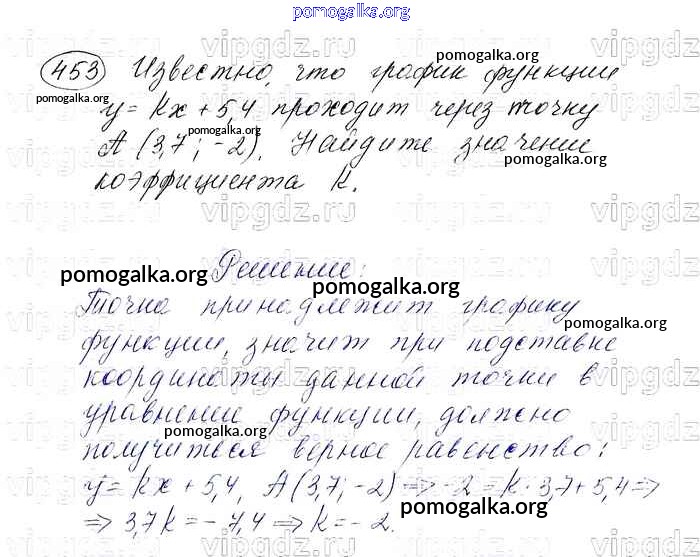 pomogalka.org
453 Известно, что график функции
y = kx + 5,4 проходит через точку
A (3,7; -2). Найдите значение
коэффициента k.
Решение:
Точка принадлежит графику
функции, значит при подставке
координаты данной точки в
уравнение функции, должно
получиться верное равенство:
y = kx + 5,4, A(3,7; -2) => -2 = k·3,7+5,4 =>
=> 3,7k = -7,4 => k = -2.
pomogalka.org
vipgdz.ru